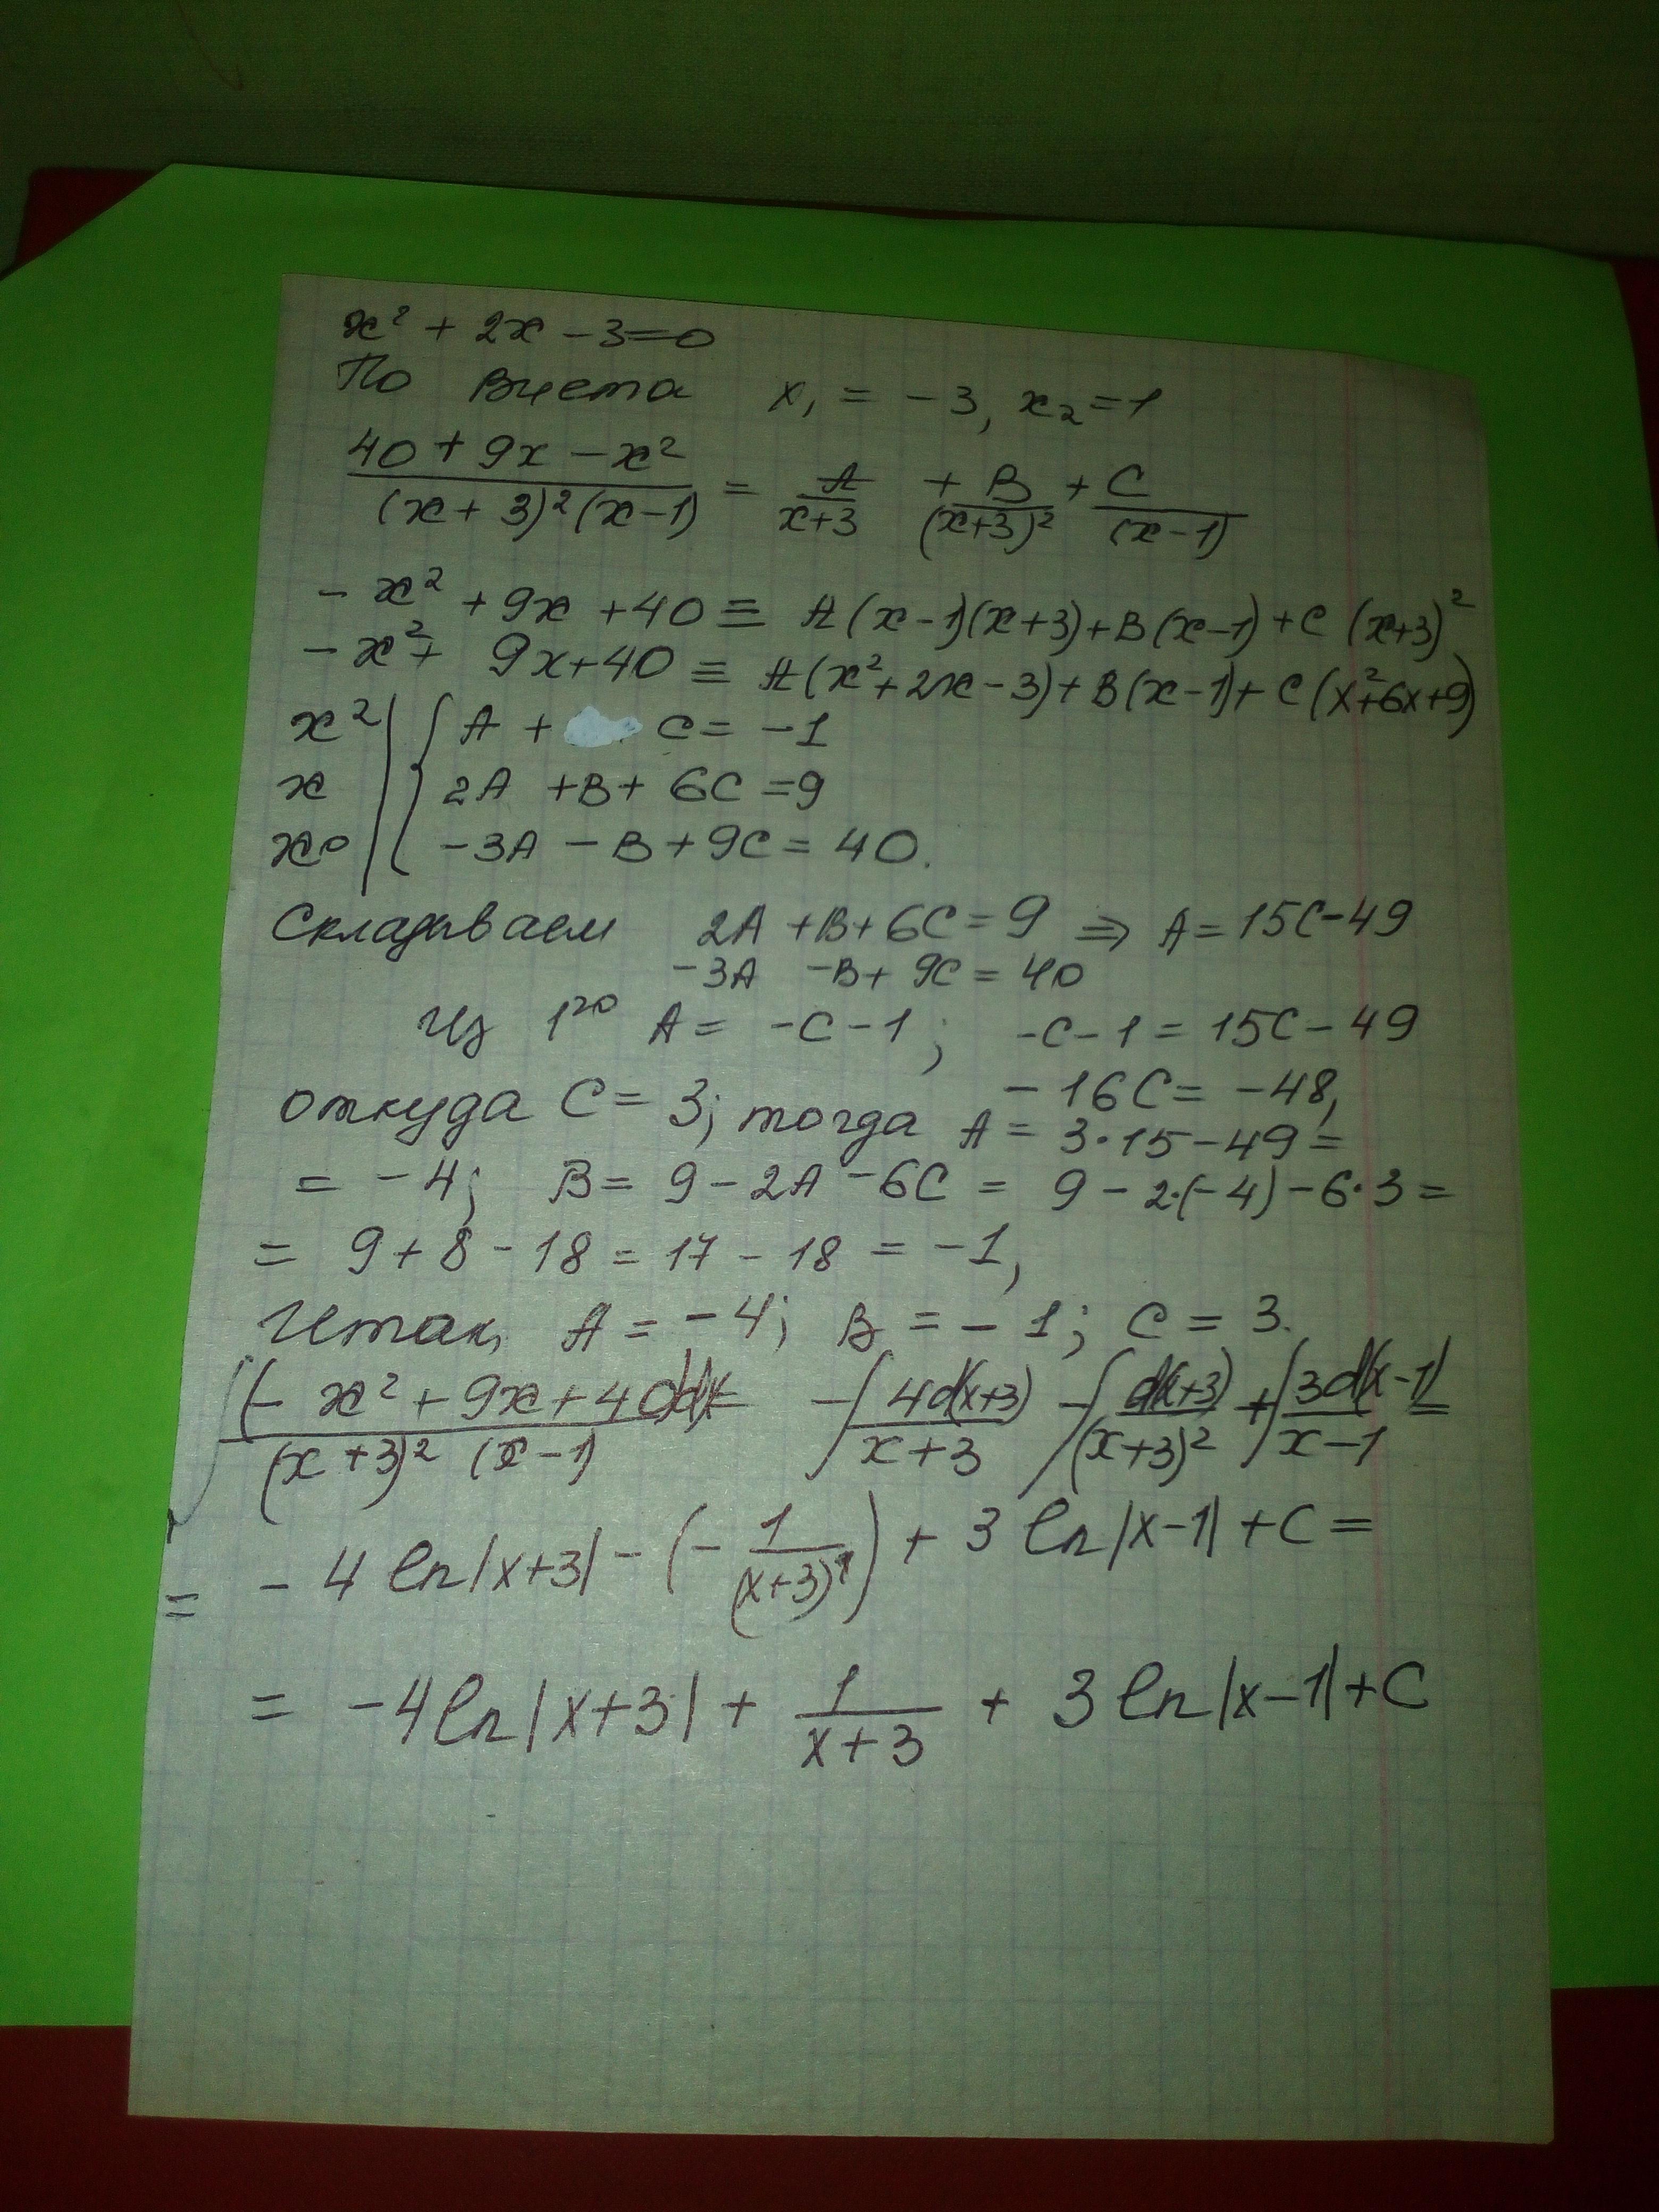 x² + 2x − 3 = 0
По Виета x₁ = −3, x₂ = 1
(40 + 9x − x²)/((x + 3)²(x − 1)) = A/(x+3) + B/(x+3)² + C/(x−1)
− x² + 9x + 40 ≡ A(x−1)(x+3) + B(x−1) + C(x+3)²
− x² + 9x + 40 ≡ A(x² + 2x − 3) + B(x−1) + C(x² + 6x + 9)
x² | { A + C = −1
x | { 2A + B + 6C = 9
x⁰ | { −3A − B + 9C = 40.
Складываем 2A + B + 6C = 9 ⇒ A = 15C − 49
−3A − B + 9C = 40
Из 1го A = −C − 1; −C − 1 = 15C − 49
−16C = −48,
откуда C = 3; тогда A = 3·15 − 49 =
= −4; B = 9 − 2A − 6C = 9 − 2·(−4) − 6·3 =
= 9 + 8 − 18 = 17 − 18 = −1,
Итак, A = −4; B = −1; C = 3.
∫ (−x² + 9x + 40)dx/((x + 3)² (x − 1)) = −∫ 4d(x+3)/(x+3) − ∫ d(x+3)/(x+3)² + ∫ 3d(x−1)/(x−1) =
= −4 ln|x+3| − (−1/(x+3)¹) + 3 ln|x−1| + C =
= −4 ln|x+3| + 1/(x+3) + 3 ln|x−1| + C